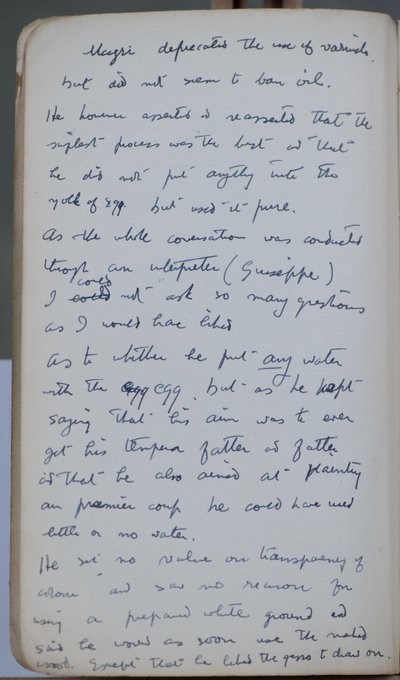 Magri deprecated the use of varnish.
but did not seem to ban oil.
He however asserted & reasserted that the
simplest process was the best & that
he did not put anything into the
yolk of egg but used it pure.
As the whole conversation was conducted
through an interpreter (Guiseppe)
I could could not ask so many questions
as I would have liked
as to whether he put any water
with the egg egg. but as he kept
saying that his aim was to ever
get his tempera fatter & fatter
& that he also aimed at painting
au premier coup he could have used
little or no water.
He set no value on transparency of
colour and saw no reason for
using a prepared white ground and
said he would as soon use the naked
wood. Except that he liked the gesso to draw on.